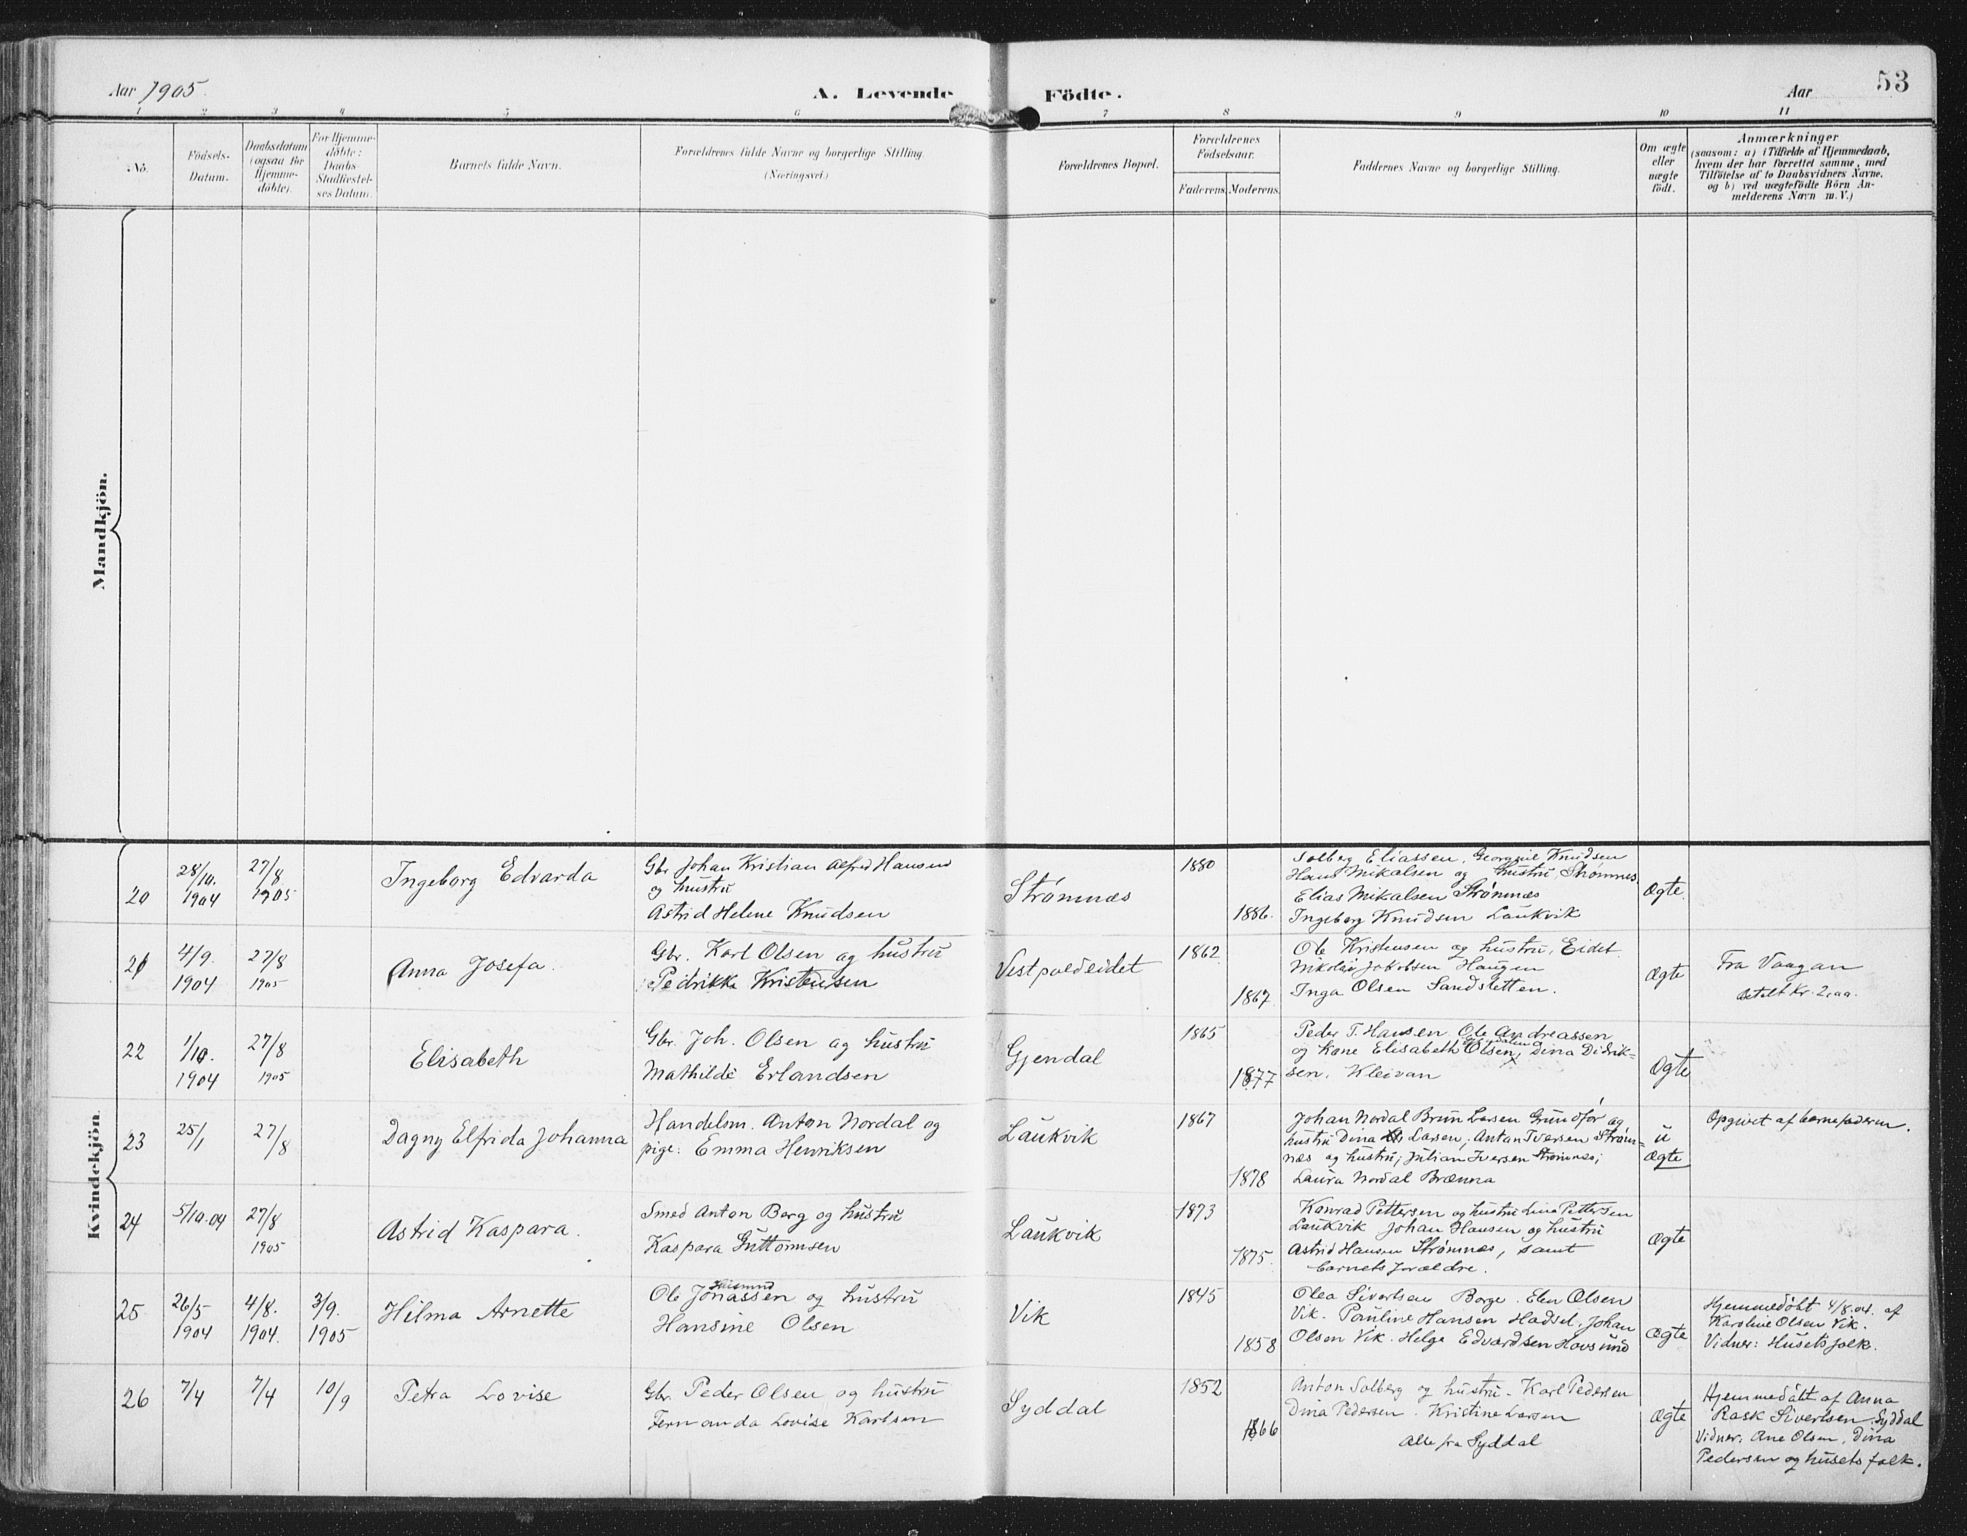 Aar 1905.
A. Levende Födte.
Aar
53
1 2 3 4 5 6 7 8 9 10 11
No.
Födsels-
Datum.
Daabsdatum
(ogsaa for
Hjemme-
döbte).
For Hjemme-
döbte:
Daabs
Stadfæstel-
ses Datum.
Barnets fulde Navn.
Forældrenes fulde Navne og borgerlige Stilling
(Næringsvei.)
Forældrenes Bopæl.
Forældrenes
Födselsaar.
Faderens. Moderens.
Faddernes Navne og borgerlige Stilling.
Om ægte
eller
uægte
födt.
Anmærkninger
(saasom: a) i Tilfælde af Hjemmedaab,
hvem der har forrettet samme, med
Tilföielse af to Daabsvidners Navne.
og b) ved uægtefödte Börn An-
melderens Navn m. V.)
Mandkjön.
Kvindekjön.
20
28/10.
1904
27/8
1905
Ingeborg Edvarda
Gbr Johan Kristian Alfred Hansen
og hustru
Astrid Helene Knudsen
Strømnæs
1880
1886.
Solberg Eliassen. Knudsen
Hans Mikalsen og hustru, Strømnes.
Elias Mikalsen Strømnæs
Ingeborg Knudsen Laukvik
Ægte.
21
4/9.
1904
27/8
1905
Anna Josefa.
Gbr. Karl Olsen og hustru
Pedrikke Kristensen
Vestpoldeidet
1862
1867
Ole Kristensen og hustru, Eidet.
Nikolai Jakobsen Haugen
Inga Olsen Sandsletten.
Ægte
Fra Vaagan
betalt Kr. 2,00.
22
1/10.
1904
27/8
1905
Elisabeth
Gbr. Joh. Olsen og hustru
Mathilde Erlandsen
Gjendal
1865
1877
Peder T. Hansen, Ole Andreassen
og Kone Elisabeth Olsen, Dina Didrik-
sen. Kleivan
Ægte
23
25/1
27/8
Dagny Elfrida Johanna
Handelsm. Anton Nordal og
pige: Emma Henriksen
Laukvik
1867
1878
Johan Nordal Brun Larsen Grundfør og
hustru Dina Larsen; Anton Iversen Strøm-
næs og hustru; Julian Iversen Strømnæs;
Laura Nordal Brænna
u
ægte
Opgivet af barnefaderen.
24
5/10.04
27/8
1905
Astrid Kaspara.
Smed Anton Berg og hustru
Kaspara Guttormsen
Laukvik
1873
1875.
Konrad Pettersen og hustru Lina Pettersen
Laukvik Johan Hansen og hustru
Astrid Hansen Strømnæs, samt
barnets forældre.
Ægte
25
26/5
1904
4/8.
1904.
3/9.
1905
Hilma Arnette
Husmand
Ole Jonassen og hustru
Hansine Olsen
Vik
1845
1858
Olea Sivertsen Borge. Elen Olsen
Vik. Pauline Hansen Hadsel. Johan
Olsen Vik. Helge Edvardsen Hovsund
Ægte
Hjemmedöbt 4/8.04. af
Karoline Olsen Vik.
Vidner: Husets folk.
26
7/4
7/4
10/9
Petra Lovise
Gbr. Peder Olsen og hustru
Fernanda Lovise Karlsen
Syddal
1852
1866
Anton Solberg og hustru. Karl Pedersen
Dina Pedersen. Kristine Larsen
Alle fra Syddal
Ægte
Hjemmedöbt af Anna
Rask Sivertsen Syddal
Vidner: Ane Olsen, Dina
Pedersen og husets folk.